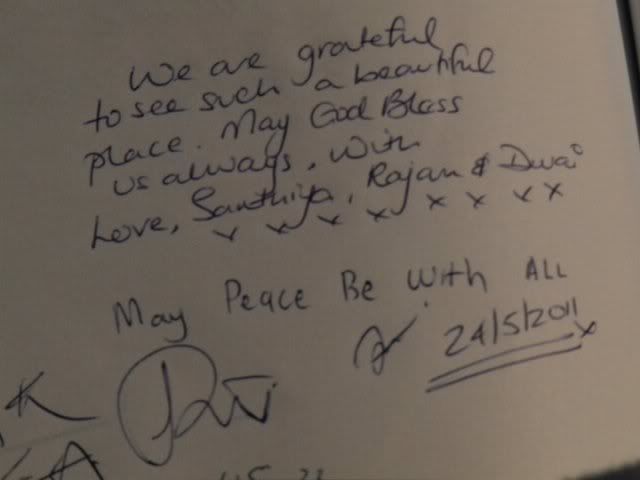 We are grateful
to see such a beautiful
place. May God Bless
us always, with
Love, Santhiya, Rajan &
x x x x x x x x
May Peace Be With ALL
24/5/2011 x
K
A